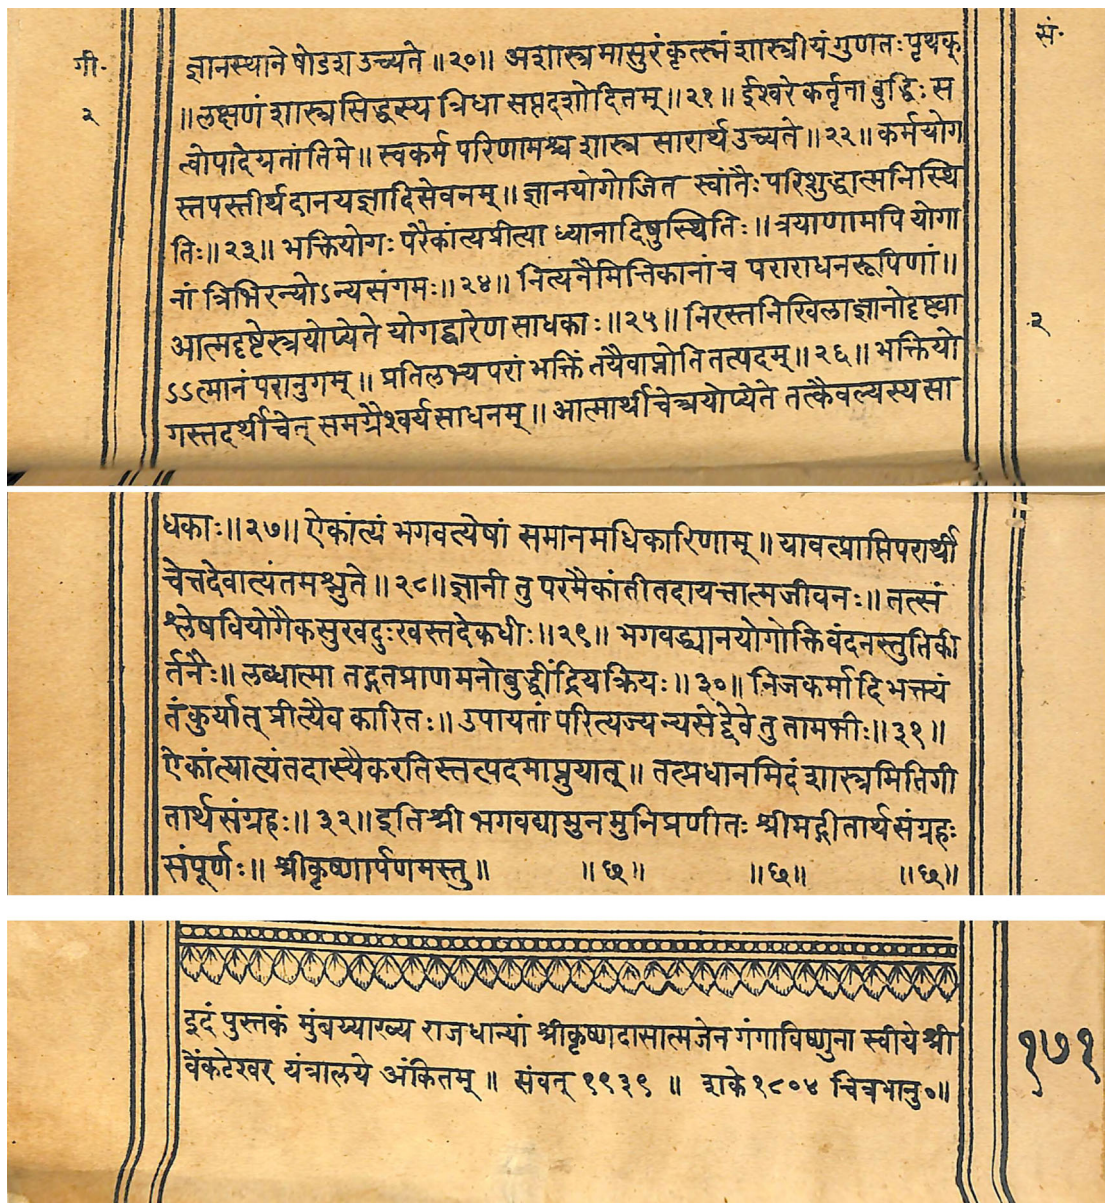 गी॰
२
सं॰
२
ज्ञानस्थाने षोडश उच्यते ॥ २० ॥ अशास्त्रमासुरं कृत्स्नं शास्त्रीयं गुणतः पृथक्
॥ लक्षणं शास्त्रसिद्धस्य त्रिधा सप्तदशोदितम् ॥ २१ ॥ ईश्वरे कर्तृता बुद्धिः स
त्वोपादेयतांतिमे ॥ स्वकर्म परिणामश्च शास्त्र सारार्थ उच्यते ॥ २२ ॥ कर्मयोग
स्तपस्तीर्थ दानयज्ञादिसेवनम् ॥ ज्ञानयोगोजित स्वांतैः परिशुद्धात्मनिस्थि
तिः ॥ २३ ॥ भक्तियोगः परैकांत्यप्रीत्या ध्यानादिषुस्थितिः ॥ त्रयाणामपि योगा
नां त्रिभिरन्योऽन्यसंगमः ॥ २४ ॥ नित्यनैमित्तिकानांच पराराधनरूपिणां ॥
आत्मदृष्टेस्त्रयोप्येते योगद्वारेण साधकाः ॥ २५ ॥ निरस्तनिखिलाज्ञानोदृष्ट्वा
ऽऽत्मानं परानुगम् ॥ प्रतिलभ्य परां भक्तिं तयैवाप्नोति तत्पदम् ॥ २६ ॥ भक्तियो
गस्तदर्थीचेत् समग्रैश्वर्यसाधनम् ॥ आत्मार्थी चेत्त्रयोप्येते तत्कैवल्यस्यसा
धकाः ॥ २७ ॥ ऐकांत्यं भगवत्येषां समानमधिकारिणाम् ॥ यावत्प्राप्तिपरार्थी
चेत्तदेवात्यंतमश्नुते ॥ २८ ॥ ज्ञानी तु परमैकांतीतदायत्तात्मजीवनः ॥ तत्सं
श्लेषवियोगैकसुखदुःखस्तदेकधीः ॥ २९ ॥ भगवद्ध्यानयोगोक्तिवंदनस्तुतिकी
र्तनैः ॥ लब्धात्मा तद्गतप्राणमनोबुद्धींद्रियक्रियः ॥ ३० ॥ निजकर्मादिभक्त्यं
तंकुर्यात् प्रीत्यैव कारितः ॥ उपायतां परित्यज्यन्यसेद्देवे तु तामभीः ॥ ३१ ॥
ऐकांत्यात्यंतदास्यैकरतिस्तत्पदमाप्नुयात् ॥ तत्प्रधानमिदंशास्त्रमितिगी
तार्थसंग्रहः ॥ ३२ ॥ इति श्री भगवद्यामुनमुनिप्रणीतः श्रीमद्गीतार्थसंग्रहः
संपूर्णः ॥ श्रीकृष्णार्पणमस्तु ॥ ॥ छ ॥ ॥ छ ॥ ॥ छ ॥
इदं पुस्तकं मुंबय्याख्य राजधान्यां श्रीकृष्णदासात्मजेन गंगाविष्णुना स्वीये श्री
वेंकटेश्वर यंत्रालये अंकितम् ॥ संवत् १९३९ ॥ शके १८०४ चित्रभानु॰ ॥
१७१